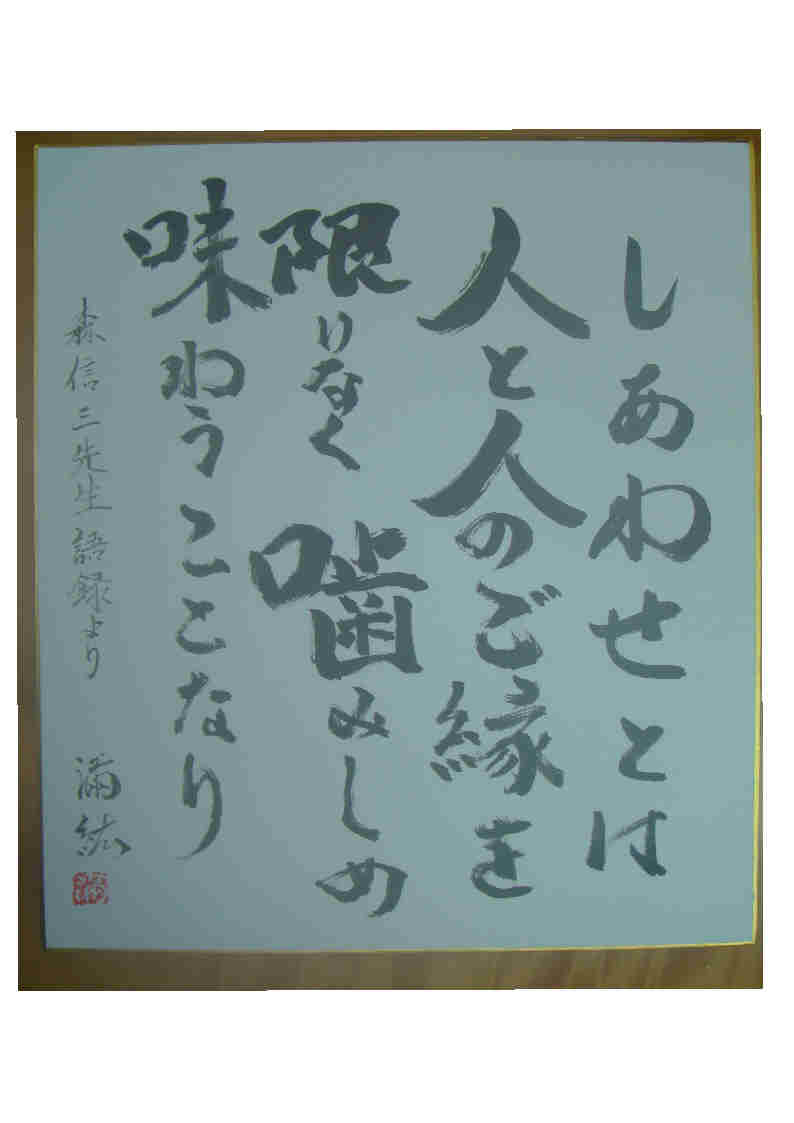 しあわせとは
人と人のご縁を
限りなく噛みしめ
味わうことなり
森信三先生語録より
満紘